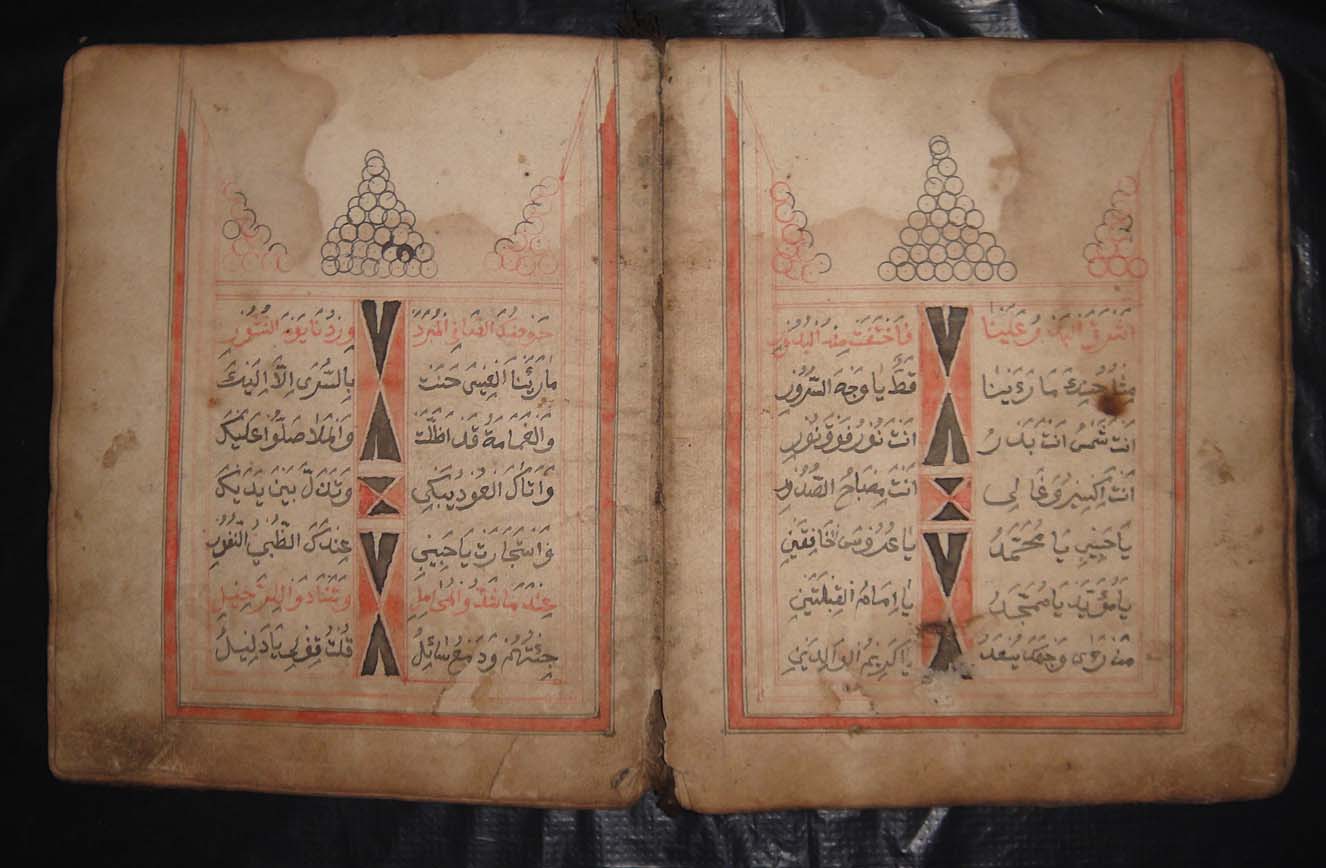 اشرق البدر علينا فاختفت منه البدور
مثل حسنك ما رءينا قط يا وجه السرور
انت شمس انت بدر انت نور فوق نور
انت اكسير وغالي انت مصباح الصدور
يا حبيبي يا محمد يا عروس الخافقين
يا مؤيد يا ممجد يا امام القبلتين
من رءى وجهك يسعد يا كريم الوالدين
حوضك الصافي المبرد وردنا يوم النشور
ما رئينا العيس حنت بالسرى الا اليك
والغمامة قد اظلت والملا صلوا عليك
واتاك العود يبكي وتذلل بين يديك
واستجارت يا حبيبي عندك الظبي النفور
عند ما شدوا المحامل وتنادوا للرحيل
جئتهم ودمع سائل قلت قف لي يا دليل